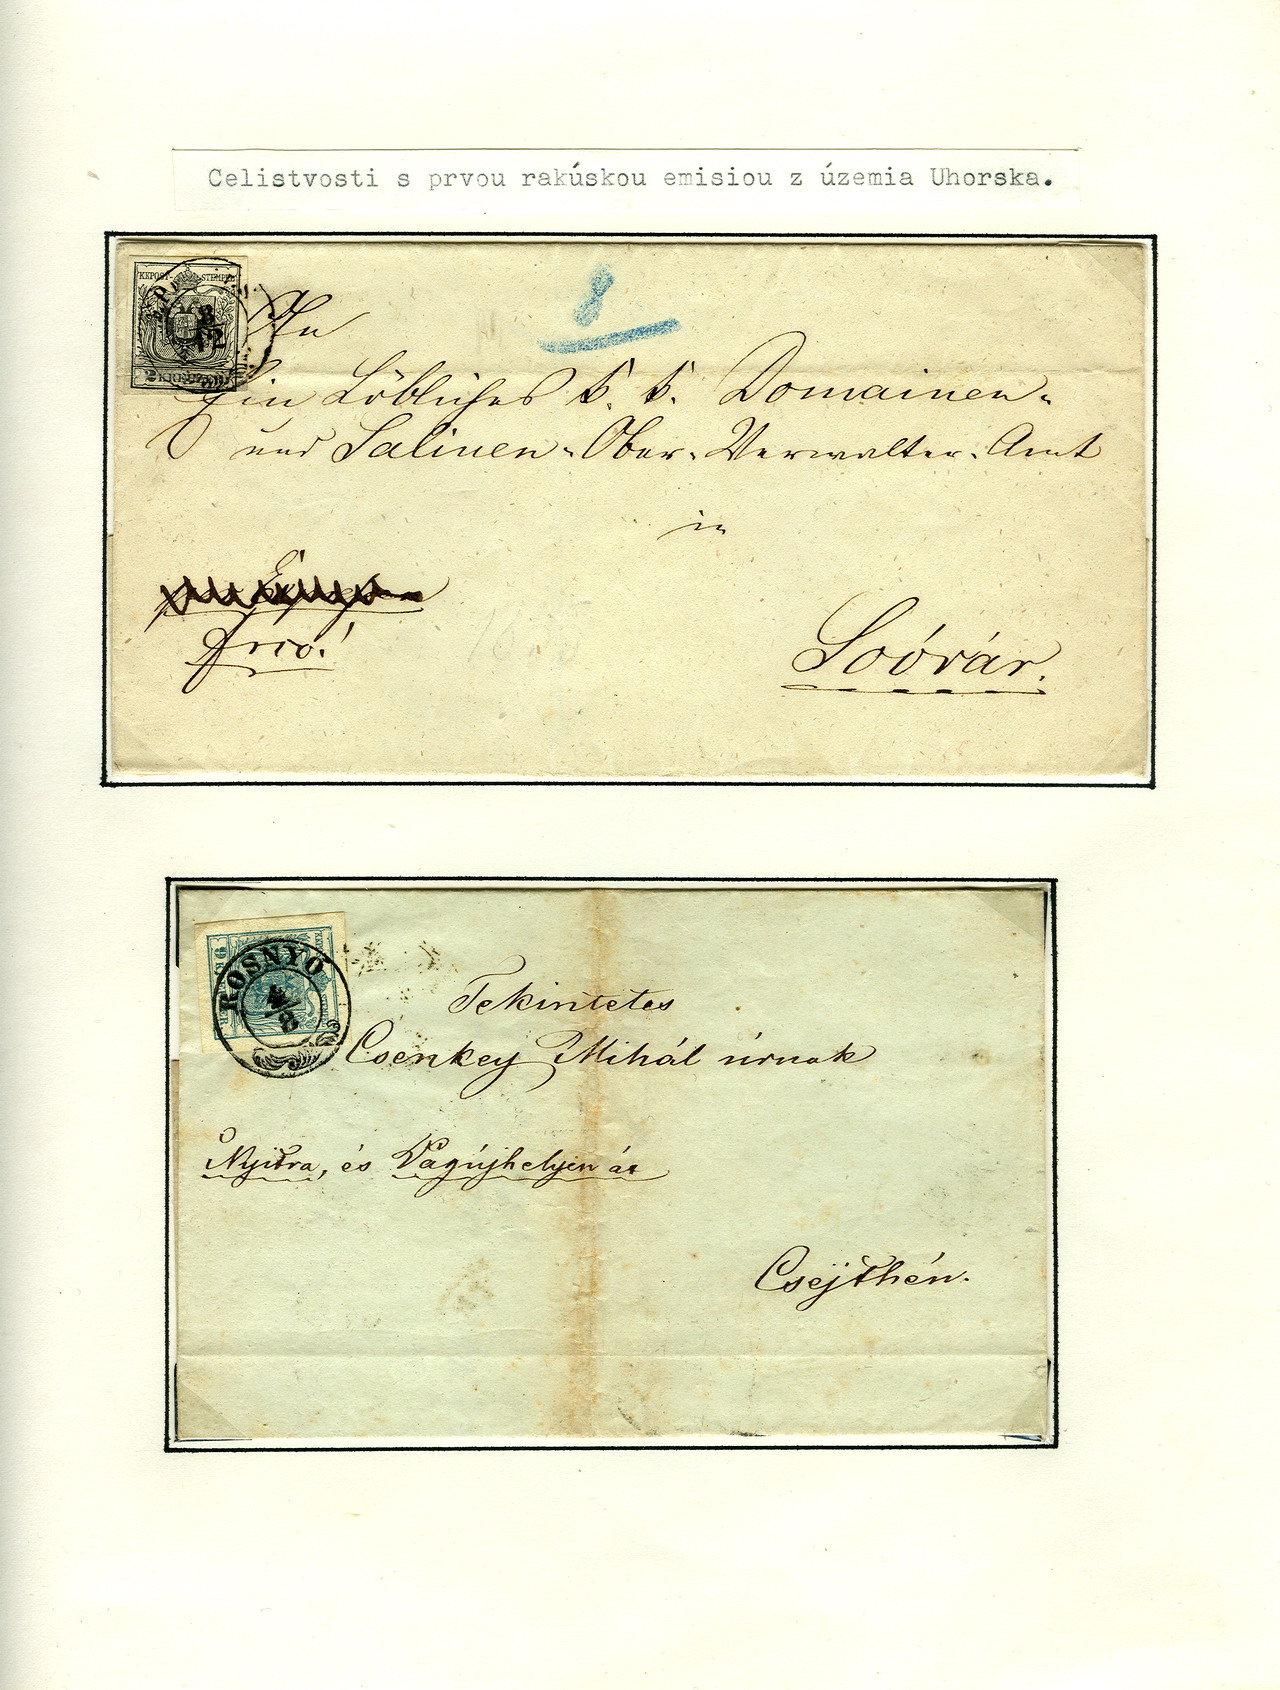 Celistvosti s prvou rakúskou emisiou z územia Uhorska.
KKPOST-STEMPEL
8
12
2 KREUZER
8
An
Ein Löbliches k. k. Domainen-
und Salinen-Ober-Verwalter-Amt
in
frco!
Soóvár.
ROSNYO
4/8
Tekintetes
Csenkey Mihál úrnak
Nyitra, és Vagújhelyen át
Csejthén.